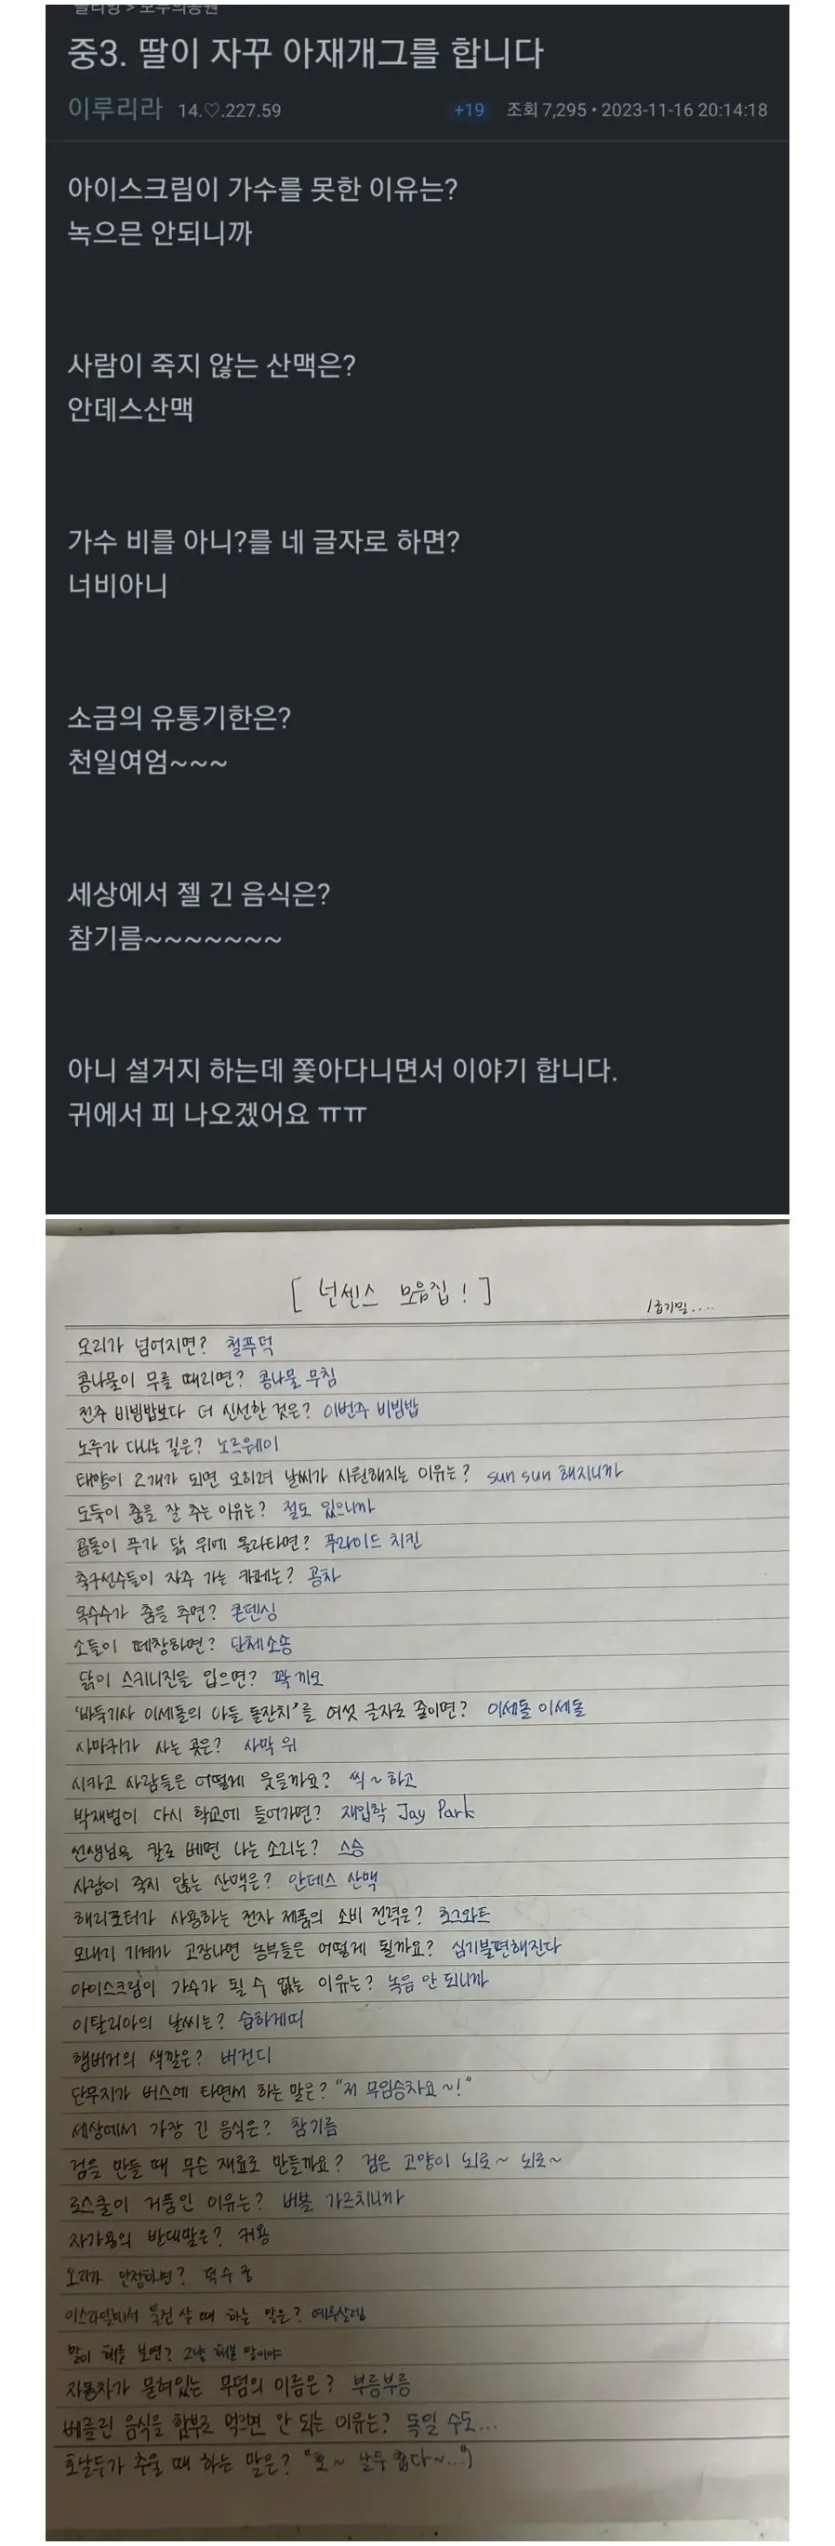 중3. 딸이 자꾸 아재개그를 합니다
이루리라 14.♡.227.59 +19 조회 7,295 • 2023-11-16 20:14:18
아이스크림이 가수를 못한 이유는?
녹으믄 안되니까
사람이 죽지 않는 산맥은?
안데스산맥
가수 비를 아니?를 네 글자로 하면?
너비아니
소금의 유통기한은?
천일여엄~~~
세상에서 젤 긴 음식은?
참기름~~~~~~~
아니 설거지 하는데 쫓아다니면서 이야기 합니다.
귀에서 피 나오겠어요 ㅠㅠ
[ 넌센스 모음집 ! ]
1급기밀....
오리가 넘어지면? 철푸덕
콩나물이 무를 때리면? 콩나물 무침
전주 비빔밥보다 더 신선한 것은? 이번주 비빔밥
노루가 다니는 길은? 노르웨이
태양이 2개가 되면 오히려 날씨가 시원해지는 이유는? sun sun 해지니까
도둑이 춤을 잘 추는 이유는? 절도 있으니까
곰돌이 푸가 닭 위에 올라타면? 푸라이드 치킨
축구선수들이 자주 가는 카페는? 공차
옥수수가 춤을 추면? 콘댄싱
소들이 떼창하면? 단체소송
닭이 스키니진을 입으면? 꽉끼오
'바둑기사 이세돌의 아들 돌잔치'를 여섯 글자로 줄이면? 이세돌 이세돌
사마귀가 사는 곳은? 사막 위
시카고 사람들은 어떻게 웃을까요? 씩~하고
박재범이 다시 학교에 들어가면? 재입학 Jay Park
선생님을 칼로 베면 나는 소리는? 스승
사람이 죽지 않는 산맥은? 안데스 산맥
해리포터가 사용하는 전자 제품의 소비 전력은? 호그와트
모내기 기계가 고장나면 농부들은 어떻게 될까요? 심기불편해진다
아이스크림이 가수가 될 수 없는 이유는? 녹음 안 되니까
이탈리아의 날씨는? 습하게띠
햄버거의 색깔은? 버건디
단무지가 버스에 타면서 하는 말은? "저 무임승차요~!"
세상에서 가장 긴 음식은? 참기름
검을 만들 때 무슨 재료로 만들까요? 검은 고양이 뇌로~ 뇌로~
로스쿨이 거품인 이유는? 버블 가르치니까
자가용의 반대말은? 커용
오리가 단정하면? 덕수궁
이스라엘에서 물건 살 때 하는 말은? 예루살렘
말이 해를 보면? 그냥 해본 말이야
자동차가 묻혀있는 무덤의 이름은? 부릉부릉
베를린 음식을 함부로 먹으면 안 되는 이유는? 독일 수도...
호날두가 추울 때 하는 말은? "호~ 날두 춥다~..."